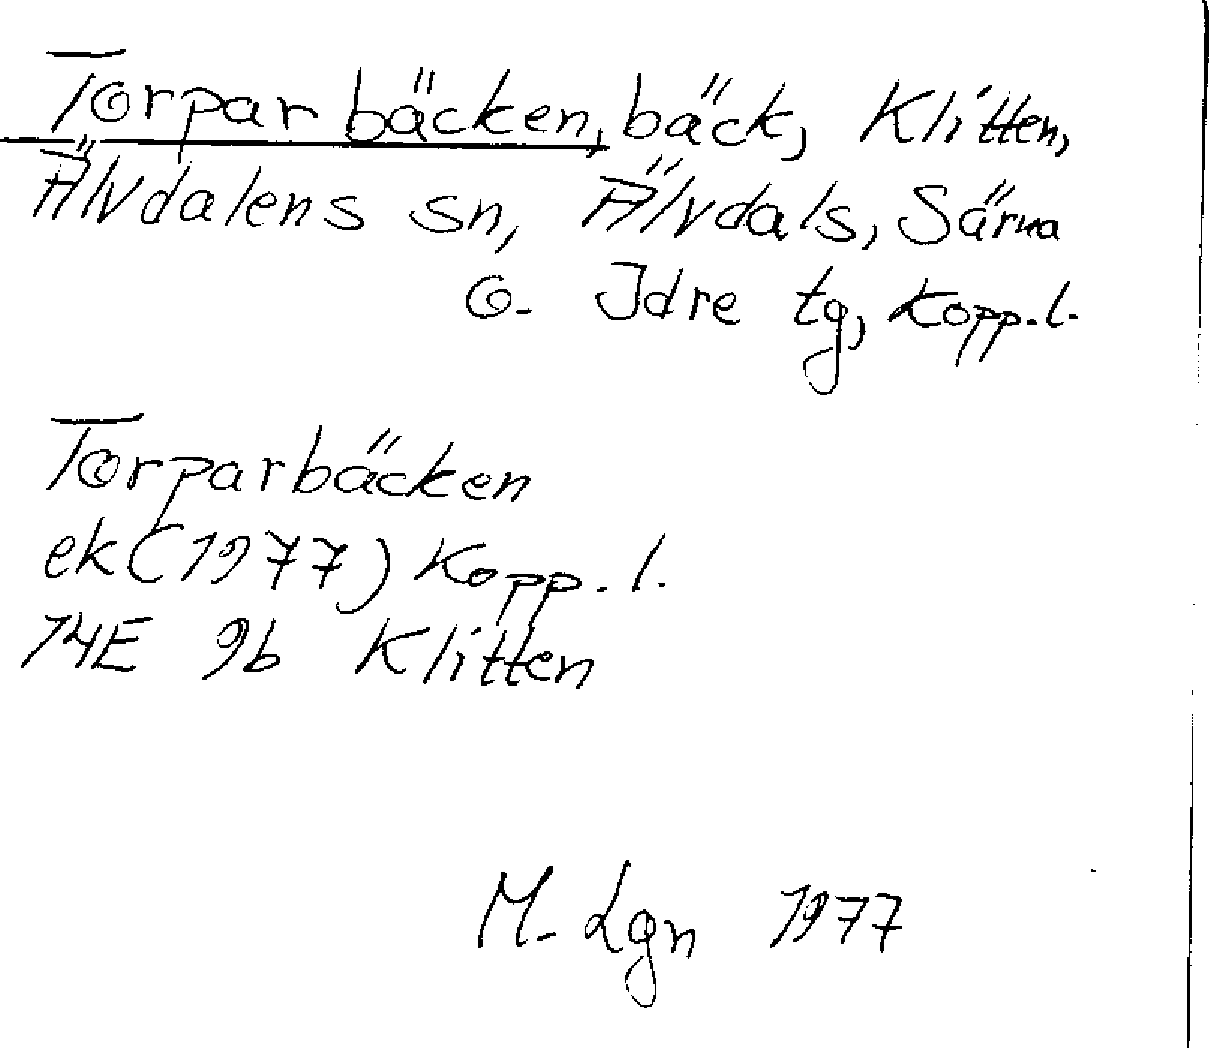 Torparbäcken, bäck, Klitten,
Älvdalens sn, Älvdals, Särna
o. Idre tg, Kopp. l.
Torparbäcken
ek (1977) Kopp. l.
14E 9b Klitten
M. Lgn 1977